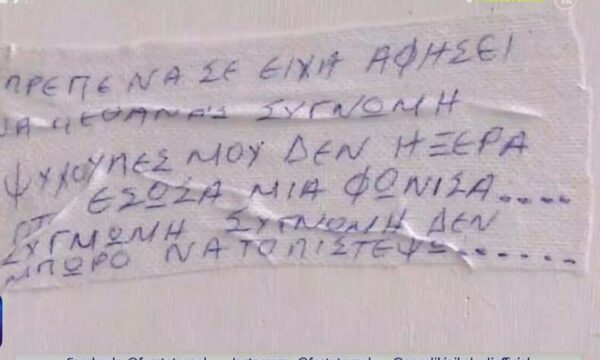 ΠΡΕΠΕ ΝΑ ΣΕ ΕΙΧΑ ΑΦΗΣΕΙ
ΝΑ ΠΕΘΑΝΑΣ ΣΥΓΝΩΜΗ
ΨΥΧΟΥΠΕΣ ΜΟΥ ΔΕΝ ΗΞΕΡΑ
ΟΤ ΕΣΩΣΑ ΜΙΑ ΦΩΝΙΣΑ....
ΣΥΓΝΩΜΗ ΣΥΓΝΩΜΗ ΔΕΝ
ΜΠΩΡΟ ΝΑ ΤΟ ΠΙΣΤΕΨΩ......